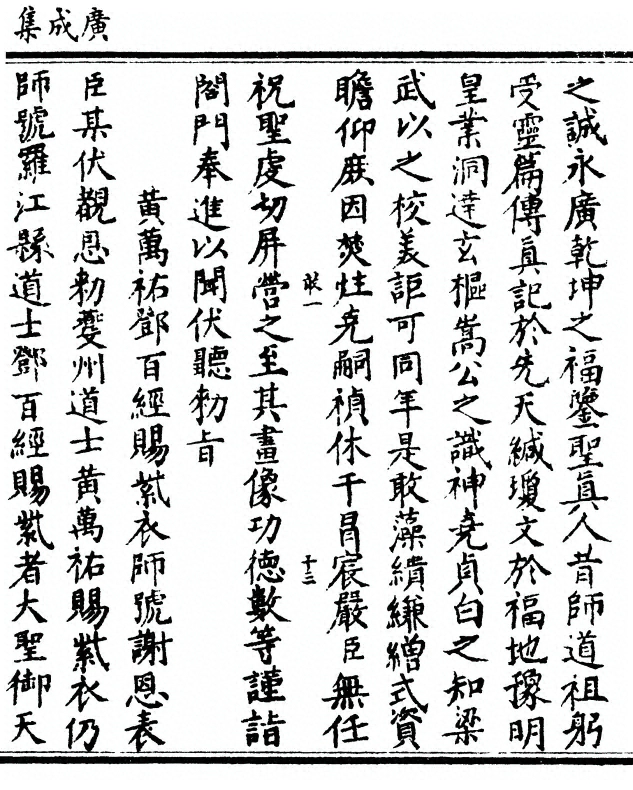 廣成集
之誠永廣乾坤之福鑒聖真人昔師道祖躬
受靈篇傳真記於先天緘瓊文於福地豫明
皇業洞達玄樞嵩公之識神堯貞白之知梁
武以之校美詎可同年是敢藻繢縑繒式資
瞻仰庶因焚炷克嗣禎休干冒宸嚴臣無任
敢一
十三
祝聖虔切屏營之至其畫像功德數等謹詣
閤門奉進以聞伏聽勑旨
黃萬祐鄧百經賜紫衣師號謝恩表
臣某伏覩恩勑夔州道士黃萬祐賜紫衣仍
師號羅江縣道士鄧百經賜紫者大聖御天